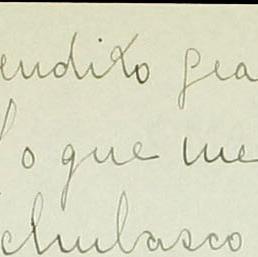 endito gea
lo que me
chubasco